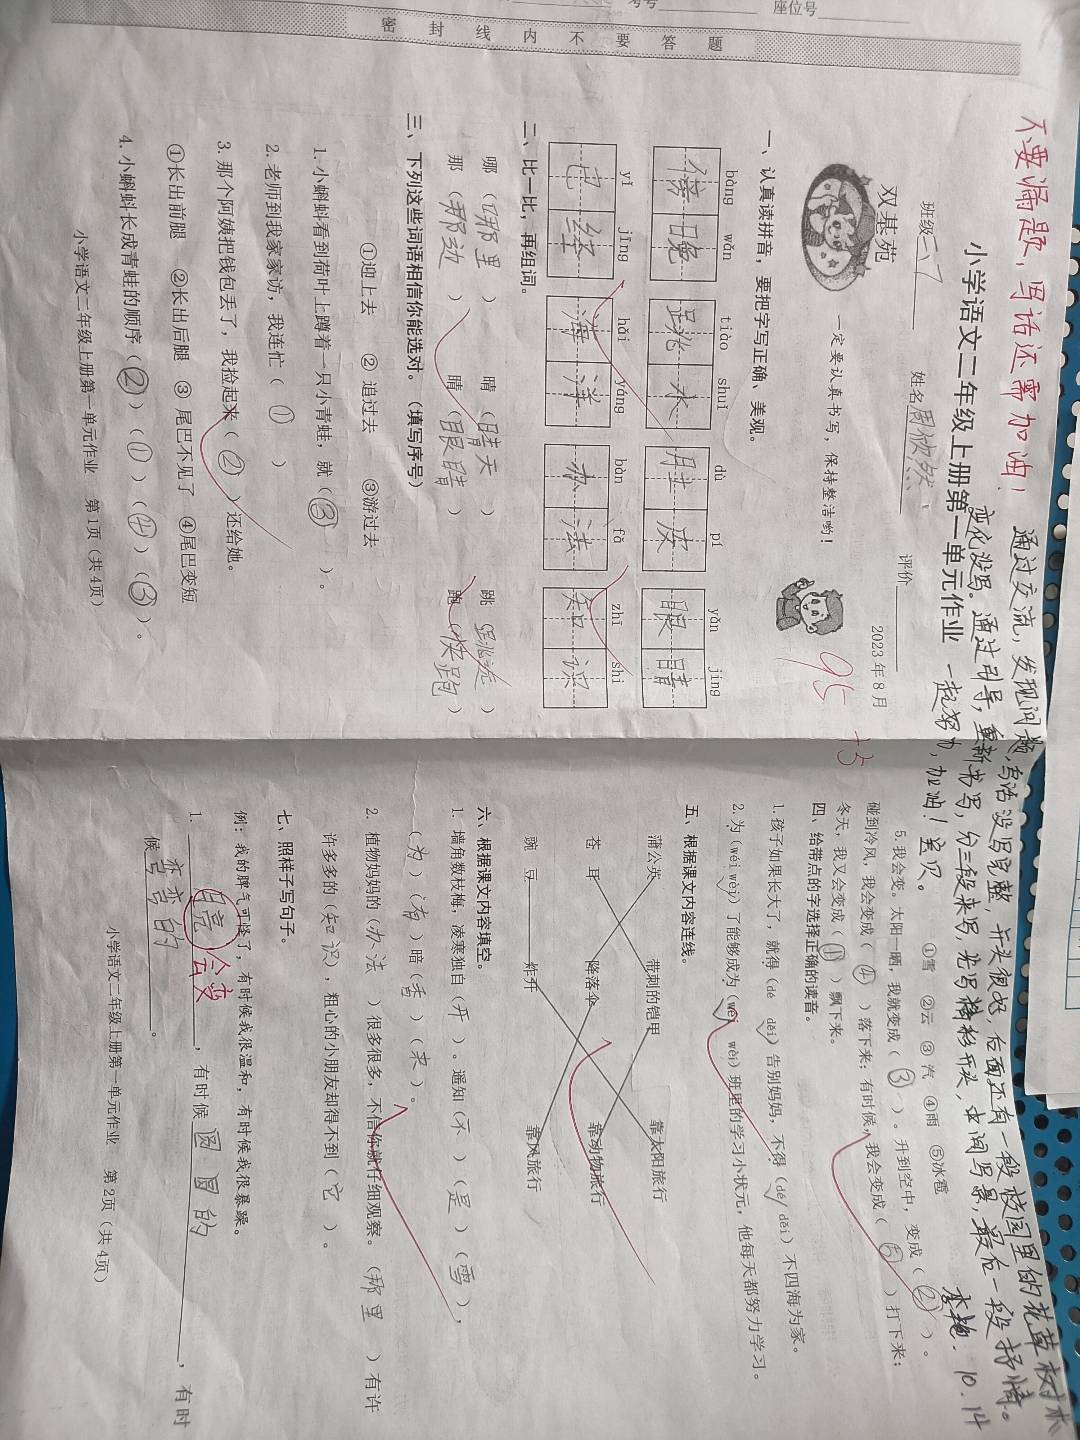 考号 座位号
密 封 线 内 不 要 答 题
不要漏题，写话还需加油！
小学语文二年级上册第一单元作业
班级 二7 姓名 评价
双基苑
2023 年 8 月
一定要认真书写，保持整洁哟！
95
+3
一、认真读拼音，要把字写正确、美观。
bàng wǎn tiào shuǐ dù pí yǎn jing
傍晚 跳水 肚皮 眼睛
yǐ jīng hǎi yáng bàn fǎ zhī shi
已经 海洋 办法 知识
二、比一比，再组词。
哪（哪里） 晴（晴天） 跳（跳远）
那（那边） 睛（眼睛） 跑（快跑）
三、下列这些词语相信你能选对。（填写序号）
①迎上去 ② 追过去 ③游过去
1. 小蝌蚪看到荷叶上蹲着一只小青蛙，就（③）。
2. 老师到我家家访，我连忙（①）
3. 那个阿姨把钱包丢了，我捡起来（②）还给她。
①长出前腿 ②长出后腿 ③ 尾巴不见了 ④尾巴变短
4. 小蝌蚪长成青蛙的顺序（②）（①）（④）（③）。
小学语文二年级上册第一单元作业 第 1页（共 4页）
通过交流，发现问题，写话没写完整，开头很好，后面还有一段校园里的花草树木
变化没写。通过引导，重新书写，分三段来写，先写精彩开头，中间写景，最后一段抒情。
一起努力，加油！宝贝。
李艳. 10.14
①雪 ②云 ③ 汽 ④雨 ⑤冰雹
5. 我会变。太阳一晒，我就变成（③）。升到空中，变成（②）。
碰到冷风，我会变成（④）落下来；有时候，我会变成（⑤）打下来；
冬天，我又会变成（①）飘下来。
四、给带点的字选择正确的读音。
1. 孩子如果长大了，就得（dé děi）告别妈妈，不得（dé/ děi）不四海为家。
2. 为（wéi wèi）了能够成为（wéi wèi）班里的学习小状元，他每天都努力学习。
五、根据课文内容连线。
蒲公英 带刺的铠甲 靠太阳旅行
苍 耳 降落伞 靠动物旅行
豌 豆 炸开 靠风旅行
六、根据课文内容填空。
1. 墙角数枝梅，凌寒独自（开）。遥知（不）（是）（雪），
（为）（有）暗（香）（来）。
2. 植物妈妈的（办法）很多很多，不信你就仔细观察。（那里）有许
许多多的（知识），粗心的小朋友却得不到（它）。
七、照样子写句子。
例：我的脾气可怪了，有时候我很温和，有时候我很暴躁。
1. 月亮会变，有时候圆圆的，有时
候弯弯的。
小学语文二年级上册第一单元作业 第 2页（共 4页）